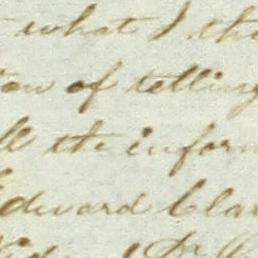 what I thi
on of telling
ll the inform
Edward Clar